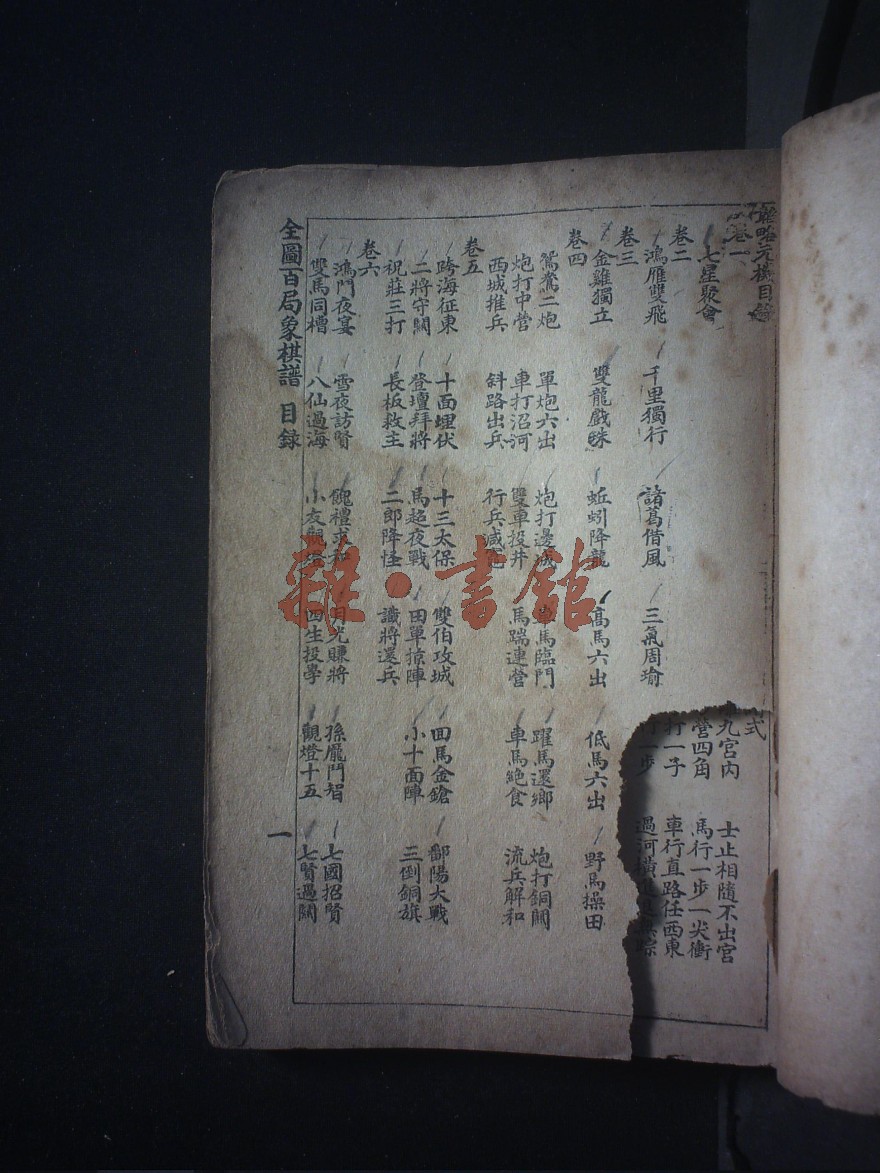 元機目錄
卷一
七星聚會
卷二
鴻雁雙飛 千里獨行 諸葛借風 三氣周瑜
卷三
金雞獨立 雙龍戲珠 蚯蚓降龍 高馬六出 低馬六出 野馬操田
卷四
鴛鴦二炮 單炮六出 炮打邊城 馬臨門 躍馬還鄉 炮打銅關
炮打中營 車打沼河 雙車投井 馬踹連營 車馬絕食 流兵解和
西城推兵 斜路出兵 行兵減
卷五
跨海征東 十面埋伏 十三太保 雙伯攻城 田馬金鎗 鄱陽大戰
二將守關 登壇拜將 馬超夜戰 田單掠陣 小十面陣 三倒銅旗
祝莊三打 長板救主 二郎降怪 讖將還兵
卷六
鴻門夜宴 雪夜訪賢 餽禮求和 月光賺將 孫龐鬥智 七國招賢
雙馬同槽 八仙過海 小友觀燈 四生投學 觀燈十五 七賢過關
式
九宮內 士止相隨不出宮
營四角 馬行一步一尖衝
打一子 車行直路任西東
行一步 過河橫
全圖百局象棋譜 目錄
一
雜·書館